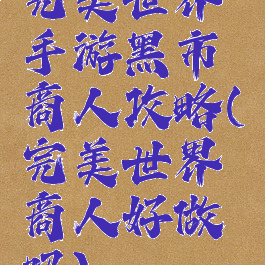 完美世界
手游黑市
商人攻略(
完美世界
商人好做
吗)